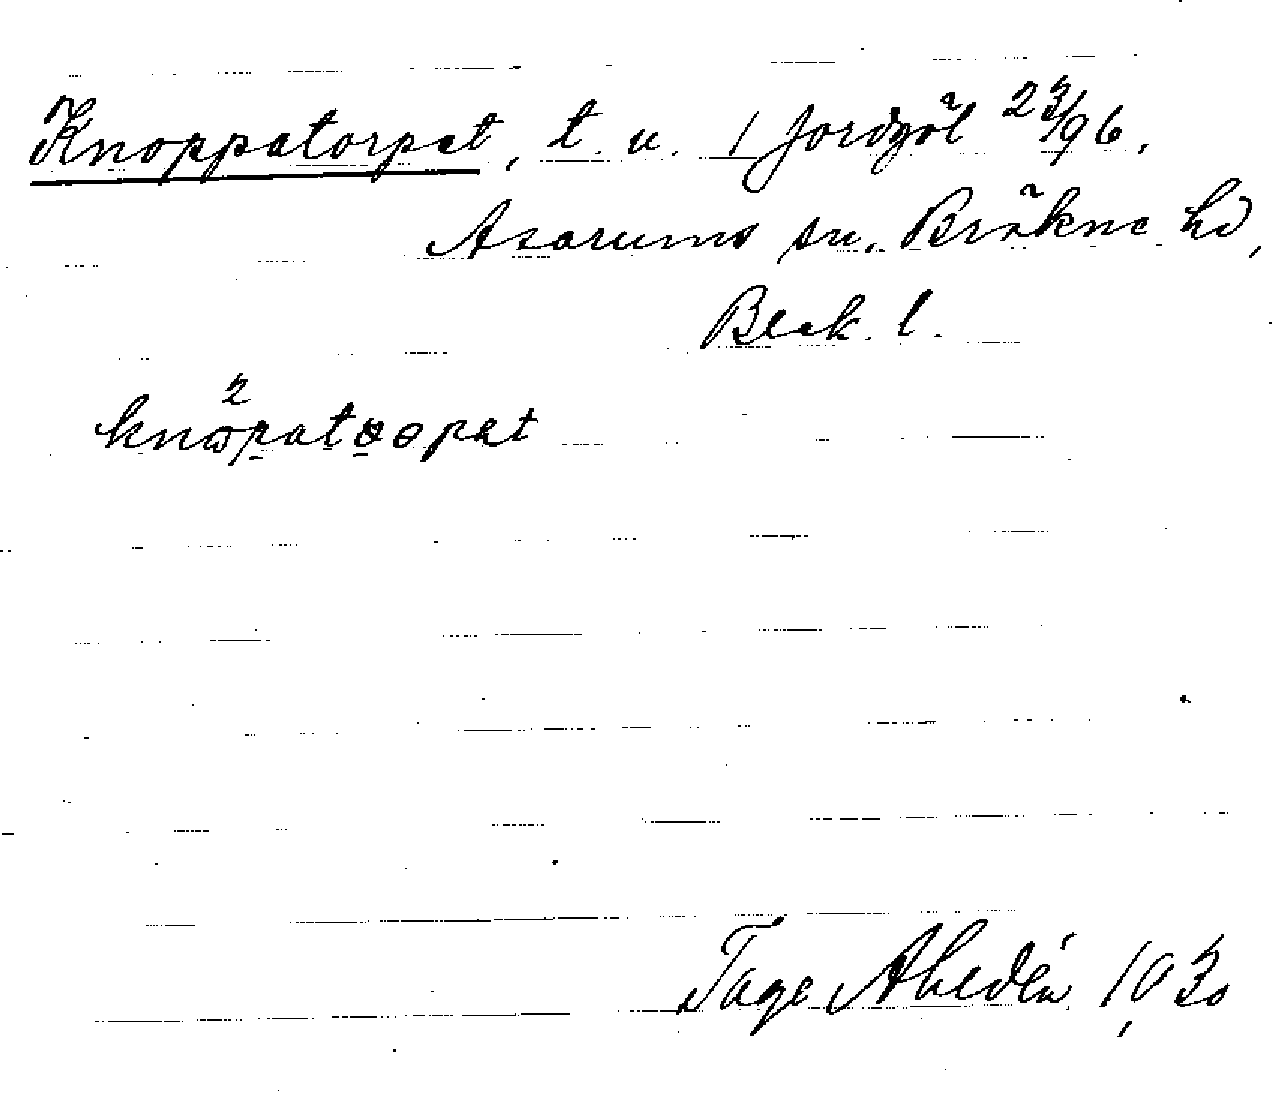 Knoppatorpet, t. u. 1 Jordgöl 23/96.
Asarums sn. Bräkne hd,
Blek. l.
2
knɷpatɵɵpet
Tage Ahldén 1930